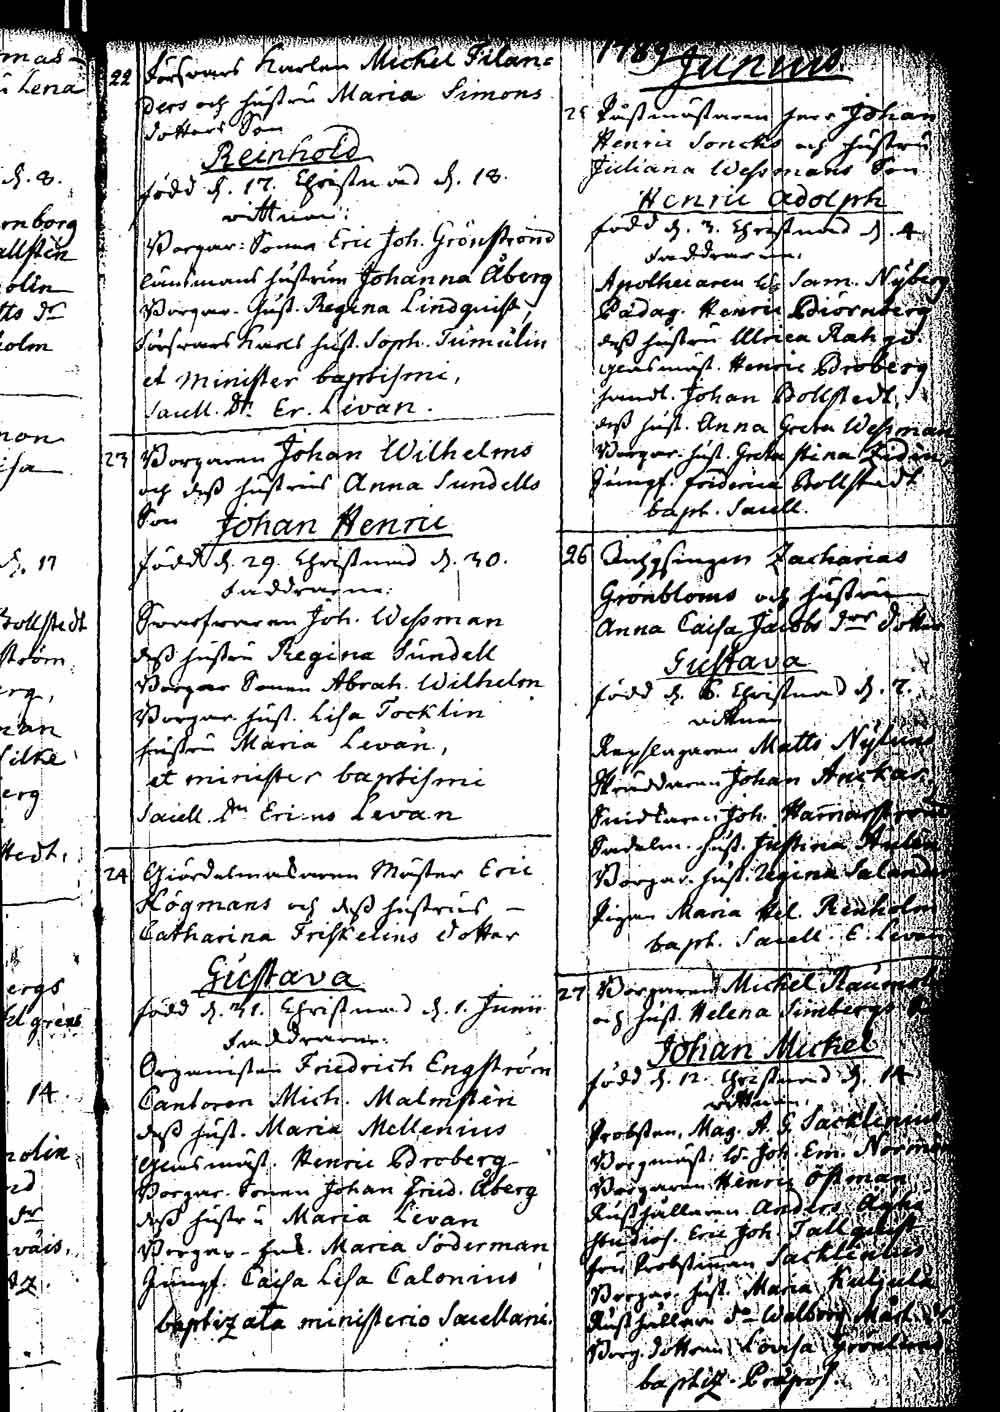 mas-
Lena
d. 8.
rnborg
allstén
olin
tts dr
holm
non
isa
d. 17
Bollstedt
ström
erg,
man
silke
erg
stedt,
ergs
Elgréns
14
rolin
dr
22 Försvars Karlen Michel Filan=
ders och hustru Maria Simons
dotters Son
Reinhold
född d. 17. Christnad d. 18.
vittnen:
Borgar: Sonen Eric Joh. Grönstrand
Länsmans hustrun Johanna Åberg
Borgar. Hust. Regina Lindquist,
försvars Karls hust. Soph. Tumulin
et minister baptismi,
Sacell. Dn. Er. Levan.
23 Borgaren Johan Wilhelms
och dess hustrus Anna Sundells
Son Johan Henric
född d. 29. Christnad d. 30.
Faddrarne:
Joh. Wessman
dess hustru Regina Sundell
Borgar Sonen Abrah. Wilhelm
Borgar. hust. Lisa Tocklin
hustru Maria Levan,
et minister baptismi
Sacell. Dn Ericus Levan
24 Giördelmakaren Mäster Eric
Högmans och dess hustrus –
Catharina Friskelins dotter
Gustava
född d. 31. Christnad d. 1. Junii
Faddrarne:
Organisten Friedrich Engström
Cantoren Mich. Malmstén
dess hust. Maria Mellenius
Gensmäst. Henric Broberg
Borgar. Sonen Johan Fried. Åberg
dess hustru Maria Levan
Borgar- Maria Söderman
Jungf. Caisa Lisa Calonius
baptizata ministerio Sacellani.
1789 Junius.
25 Postmästaren Herr Johan
Henric Soncks och hustru
Juliana Wessmans Son
Henric Adolph
född d. 3. Christnad d. 4
Faddrarne:
Apothecaren Sam. Nyberg
Pädag. Henric Biörnberg
dess hustru Ulrica
Gensmäst. Henric Broberg
Handl. Johan Bollstedt,
dess hust. Anna Greta Wessman
Borgar. hust. Greta Stina
Jungf. Fridrica Bollstedt
bapt. Sacell.
26 Inhysingen Zacharias
Grönbloms och hustru
Anna Caisa Jacobs drs dotter
Gustava
född d. 6. Christnad d. 7.
vittnen
Repslagaren Matts Nylund
Skräddaren Johan Anckar.
Joh. Hamarström
Sadelm. hust. Justina
Borgar. hust. Regina Salander
Pigan Maria Hel. Renholm
bapt. Sacell. E. Levan
27 Borgaren Michel
och hust. Helena Simbergs
Johan Michel
född d. 12. Christnad d. 14
vittnen,
Probsten, Mag. A. G. Sacklinius
Borgmäst. Joh. Em. Norrman
Borgaren Henric Östman
Rusthållaren Anders
Studios. Eric Joh. Tallquist
fru Probstinnan Sacklinius
Borgar. hust. Maria
Rusthållare dr Walborg
Borg. dottern Lovisa
baptiz. Præpos.